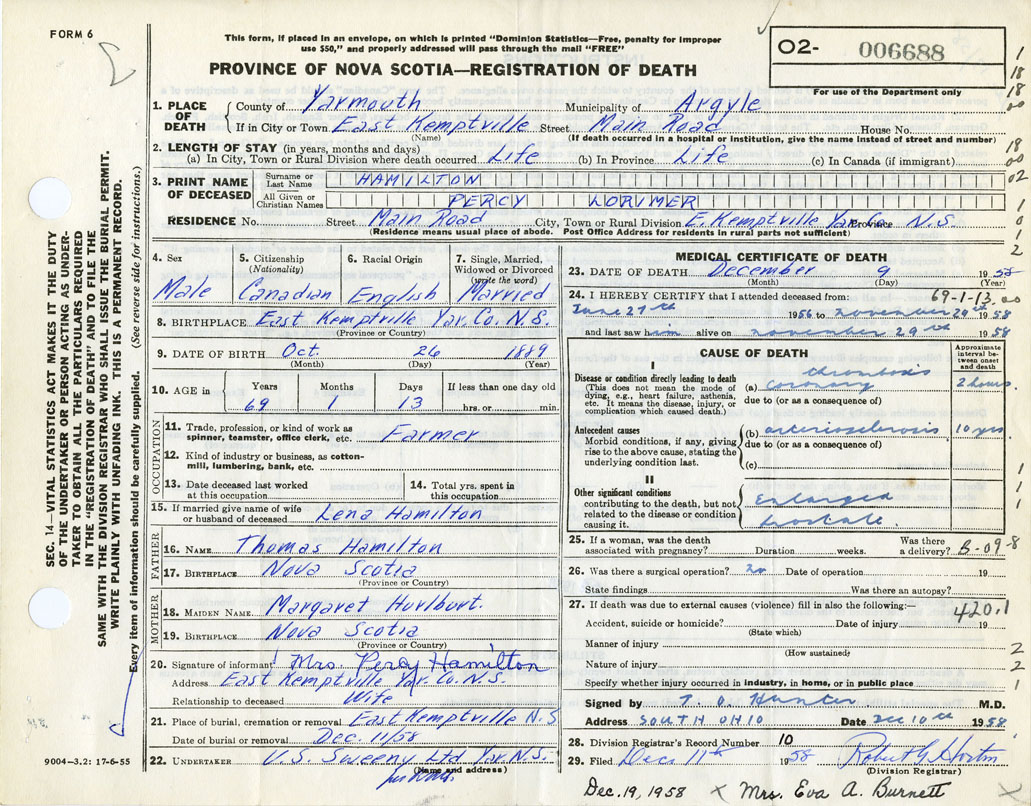 FORM 6
This form, if placed in an envelope, on which is printed "Dominion Statistics—Free, penalty for improper
use $50," and properly addressed will pass through the mail "FREE"
PROVINCE OF NOVA SCOTIA—REGISTRATION OF DEATH
O2- 006688
For use of the Department only
1. PLACE OF DEATH County of Yarmouth Municipality of Argyle
If in City or Town East Kemptville Street Main Road House No.
(Name) (If death occurred in a hospital or institution, give the name instead of street and number)
2. LENGTH OF STAY (in years, months and days)
(a) In City, Town or Rural Division where death occurred Life (b) In Province Life (c) In Canada (if immigrant)
3. PRINT NAME OF DECEASED Surname or Last Name HAMILTON
All Given or Christian Names PERCY LORIMER
RESIDENCE No. Street Main Road City, Town or Rural Division E. Kemptville Yar. Co. Province N.S.
(Residence means usual place of abode. Post Office Address for residents in rural parts not sufficient)
SEC. 14—VITAL STATISTICS ACT MAKES IT THE DUTY
OF THE UNDERTAKER OR PERSON ACTING AS UNDER-
TAKER TO OBTAIN ALL THE PARTICULARS REQUIRED
IN THE "REGISTRATION OF DEATH" AND TO FILE THE
SAME WITH THE DIVISION REGISTRAR WHO SHALL ISSUE THE BURIAL PERMIT.
WRITE PLAINLY WITH UNFADING INK. THIS IS A PERMANENT RECORD.
Every item of information should be carefully supplied. (See reverse side for instructions.)
4. Sex Male
5. Citizenship (Nationality) Canadian
6. Racial Origin English
7. Single, Married, Widowed or Divorced (write the word) Married
8. BIRTHPLACE East Kemptville Yar. Co. N.S.
(Province or Country)
9. DATE OF BIRTH Oct. 26 1889
(Month) (Day) (Year)
10. AGE in Years Months Days If less than one day old
69 1 13 hrs. or min.
OCCUPATION
11. Trade, profession, or kind of work as spinner, teamster, office clerk, etc. Farmer
12. Kind of industry or business, as cotton-mill, lumbering, bank, etc.
13. Date deceased last worked at this occupation
14. Total yrs. spent in this occupation
15. If married give name of wife or husband of deceased Lena Hamilton
FATHER
16. NAME Thomas Hamilton
17. BIRTHPLACE Nova Scotia
(Province or Country)
MOTHER
18. MAIDEN NAME Margaret Hurlburt.
19. BIRTHPLACE Nova Scotia
(Province or Country)
20. Signature of informant Mrs. Percy Hamilton
Address East Kemptville Yar. Co. N.S.
Relationship to deceased Wife
21. Place of burial, cremation or removal East Kemptville N.S
Date of burial or removal Dec. 11/58
22. UNDERTAKER V.S. Sweeny Ltd Yar. N.S.
(Name and address)
9004—3.2: 17-6-55
MEDICAL CERTIFICATE OF DEATH
23. DATE OF DEATH December 9 1958
(Month) (Day) (Year)
24. I HEREBY CERTIFY that I attended deceased from: 69-1-13.
June 27th 1956 to november 29th 1958
and last saw him alive on november 29th 1958
CAUSE OF DEATH
Approximate interval between onset and death
I
Disease or condition directly leading to death
(This does not mean the mode of dying, e.g., heart failure, asthenia, etc. It means the disease, injury, or complication which caused death.)
(a) coronary thrombosis 2 hours.
due to (or as a consequence of)
Antecedent causes
Morbid conditions, if any, giving rise to the above cause, stating the underlying condition last.
(b) arteriosclerosis 10 yrs.
due to (or as a consequence of)
(c)
II
Other significant conditions
contributing to the death, but not related to the disease or condition causing it.
Enlarged
prostate
25. If a woman, was the death associated with pregnancy? Duration weeks. Was there a delivery? B-09-8
26. Was there a surgical operation? no Date of operation 19
State findings Was there an autopsy?
27. If death was due to external causes (violence) fill in also the following:— 420.1
Accident, suicide or homicide? Date of injury 19
(State which)
Manner of injury
(How sustained)
Nature of injury
Specify whether injury occurred in industry, in home, or in public place
Signed by T. O. Hunter M.D.
Address SOUTH OHIO Date Dec 10th 1958
28. Division Registrar's Record Number 10
29. Filed Dec 11th 1958 Robert G Horton
(Division Registrar)
Dec. 19, 1958 x Mrs. Eva A. Burnett x
1
18
18
00
18
00
02
1
0
1
2
1
1
2
2
1